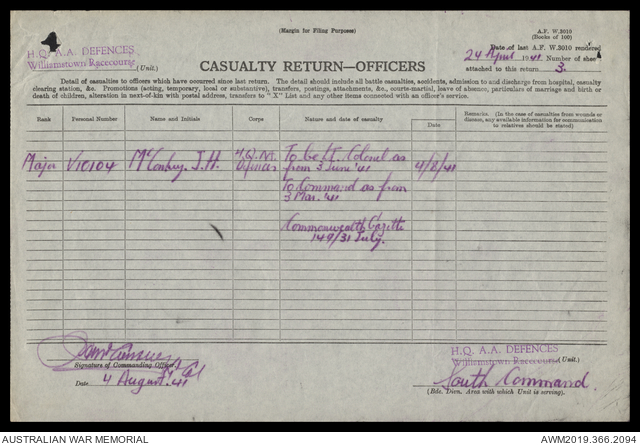 (Margin for Filing Purposes)
A.F. W.3010
(Books of 100)
4
H.Q. A.A. DEFENCES
Williamstown Racecourse (Unit.)
Date of last A.F. W.3010 rendered
24 April 1941 Number of
attached to this return 3.
CASUALTY RETURN—OFFICERS
Detail of casualties to officers which have occurred since last return. The detail should include all battle casualties, accidents, admission to and discharge from hospital, casualty
clearing station, &c. Promotions (acting, temporary, local or substantive), transfers, postings, attachments, &c., courts-martial, leave of absence, particulars of marriage and birth or
death of children, alteration in next-of-kin with postal address, transfers to "X" List and any other items connected with an officer's service.
Rank
Personal Number
Name and Initials
Corps
Nature and date of casualty
Date
Remarks. (In the case of casualties from wounds or
disease, any available information for communication
to relatives should be stated)
Major V10104 McConkey. J.H. H.Q. To be Lt. Colonel as
from 3 June '41 4/8/41
To Command as from
3 Mar. '41
Commonwealth Gazette
149/31 July.
Signature of Commanding Officer
Date. 4 August '41
H.Q. A.A. DEFENCES
Williamstown Racecourse (Unit.)
South Command.
(Bde. Divn. Area with which Unit is serving).
AUSTRALIAN WAR MEMORIAL
AWM2019.366.2094